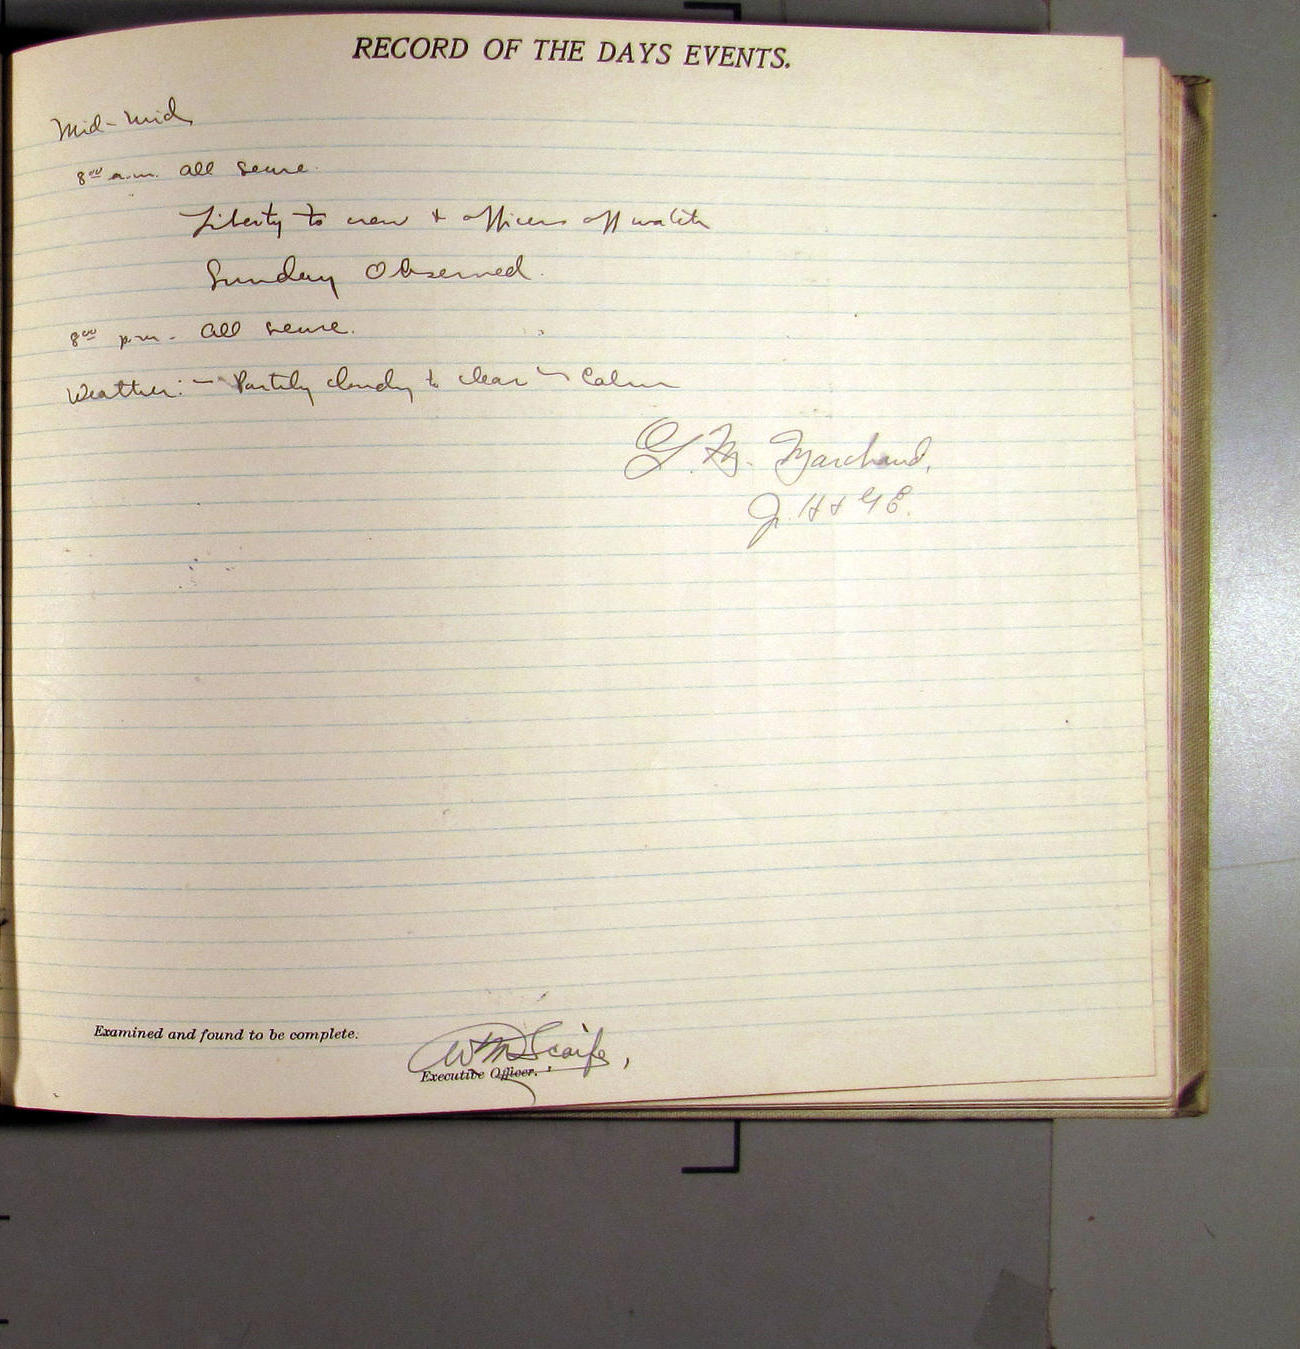 RECORD OF THE DAYS EVENTS.
Mid-Mid
8⁰⁰ a.m. all secure.
Liberty to crew & officers off watch
Sunday Observed.
8⁰⁰ p.m. - all secure.
Weather: - Partly cloudy to clear - Calm
G. M. Marchand,
Jr. H & G E.
Examined and found to be complete.
W M Scaife,
Executive Officer.